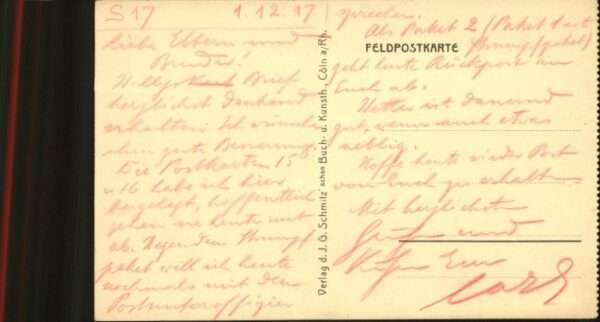 S 17 1.12.17
Liebe Eltern und
Bruder!
Willys Brief
herzlichst dankend
erhalten. Ich wünsche
ihm gute Besserung.
Die Postkarten 15
u 16 habe ich hier
beigelegt, hoffentlich
gehen sie heute mit
ab. Wegen dem Strumpf
paket will ich heute
nochmals mit dem
Postunteroffizier
sprechen.
Als Paket 2 (Paket 1 ist
Strumpfpaket)
geht heute Rückpost an
Euch ab.
Wetter ist dauernd
gut, wenn auch etwas
neblig.
Hoffe heute wieder Post
von Euch zu erhalten
Mit herzlichen
Grüßen und
Küssen Euer
Carl
FELDPOSTKARTE
Verlag d. J. G. Schmitz'schen Buch- u. Kunsth., Cöln a/Rh.